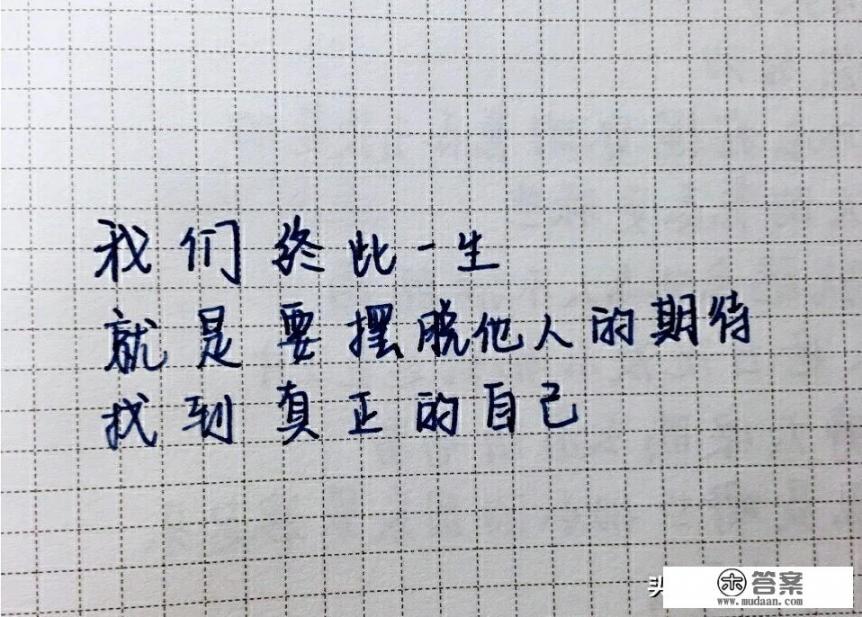 我们终此一生
就是要摆脱他人的期待
找到真正的自己
答案
www.mudaan.com